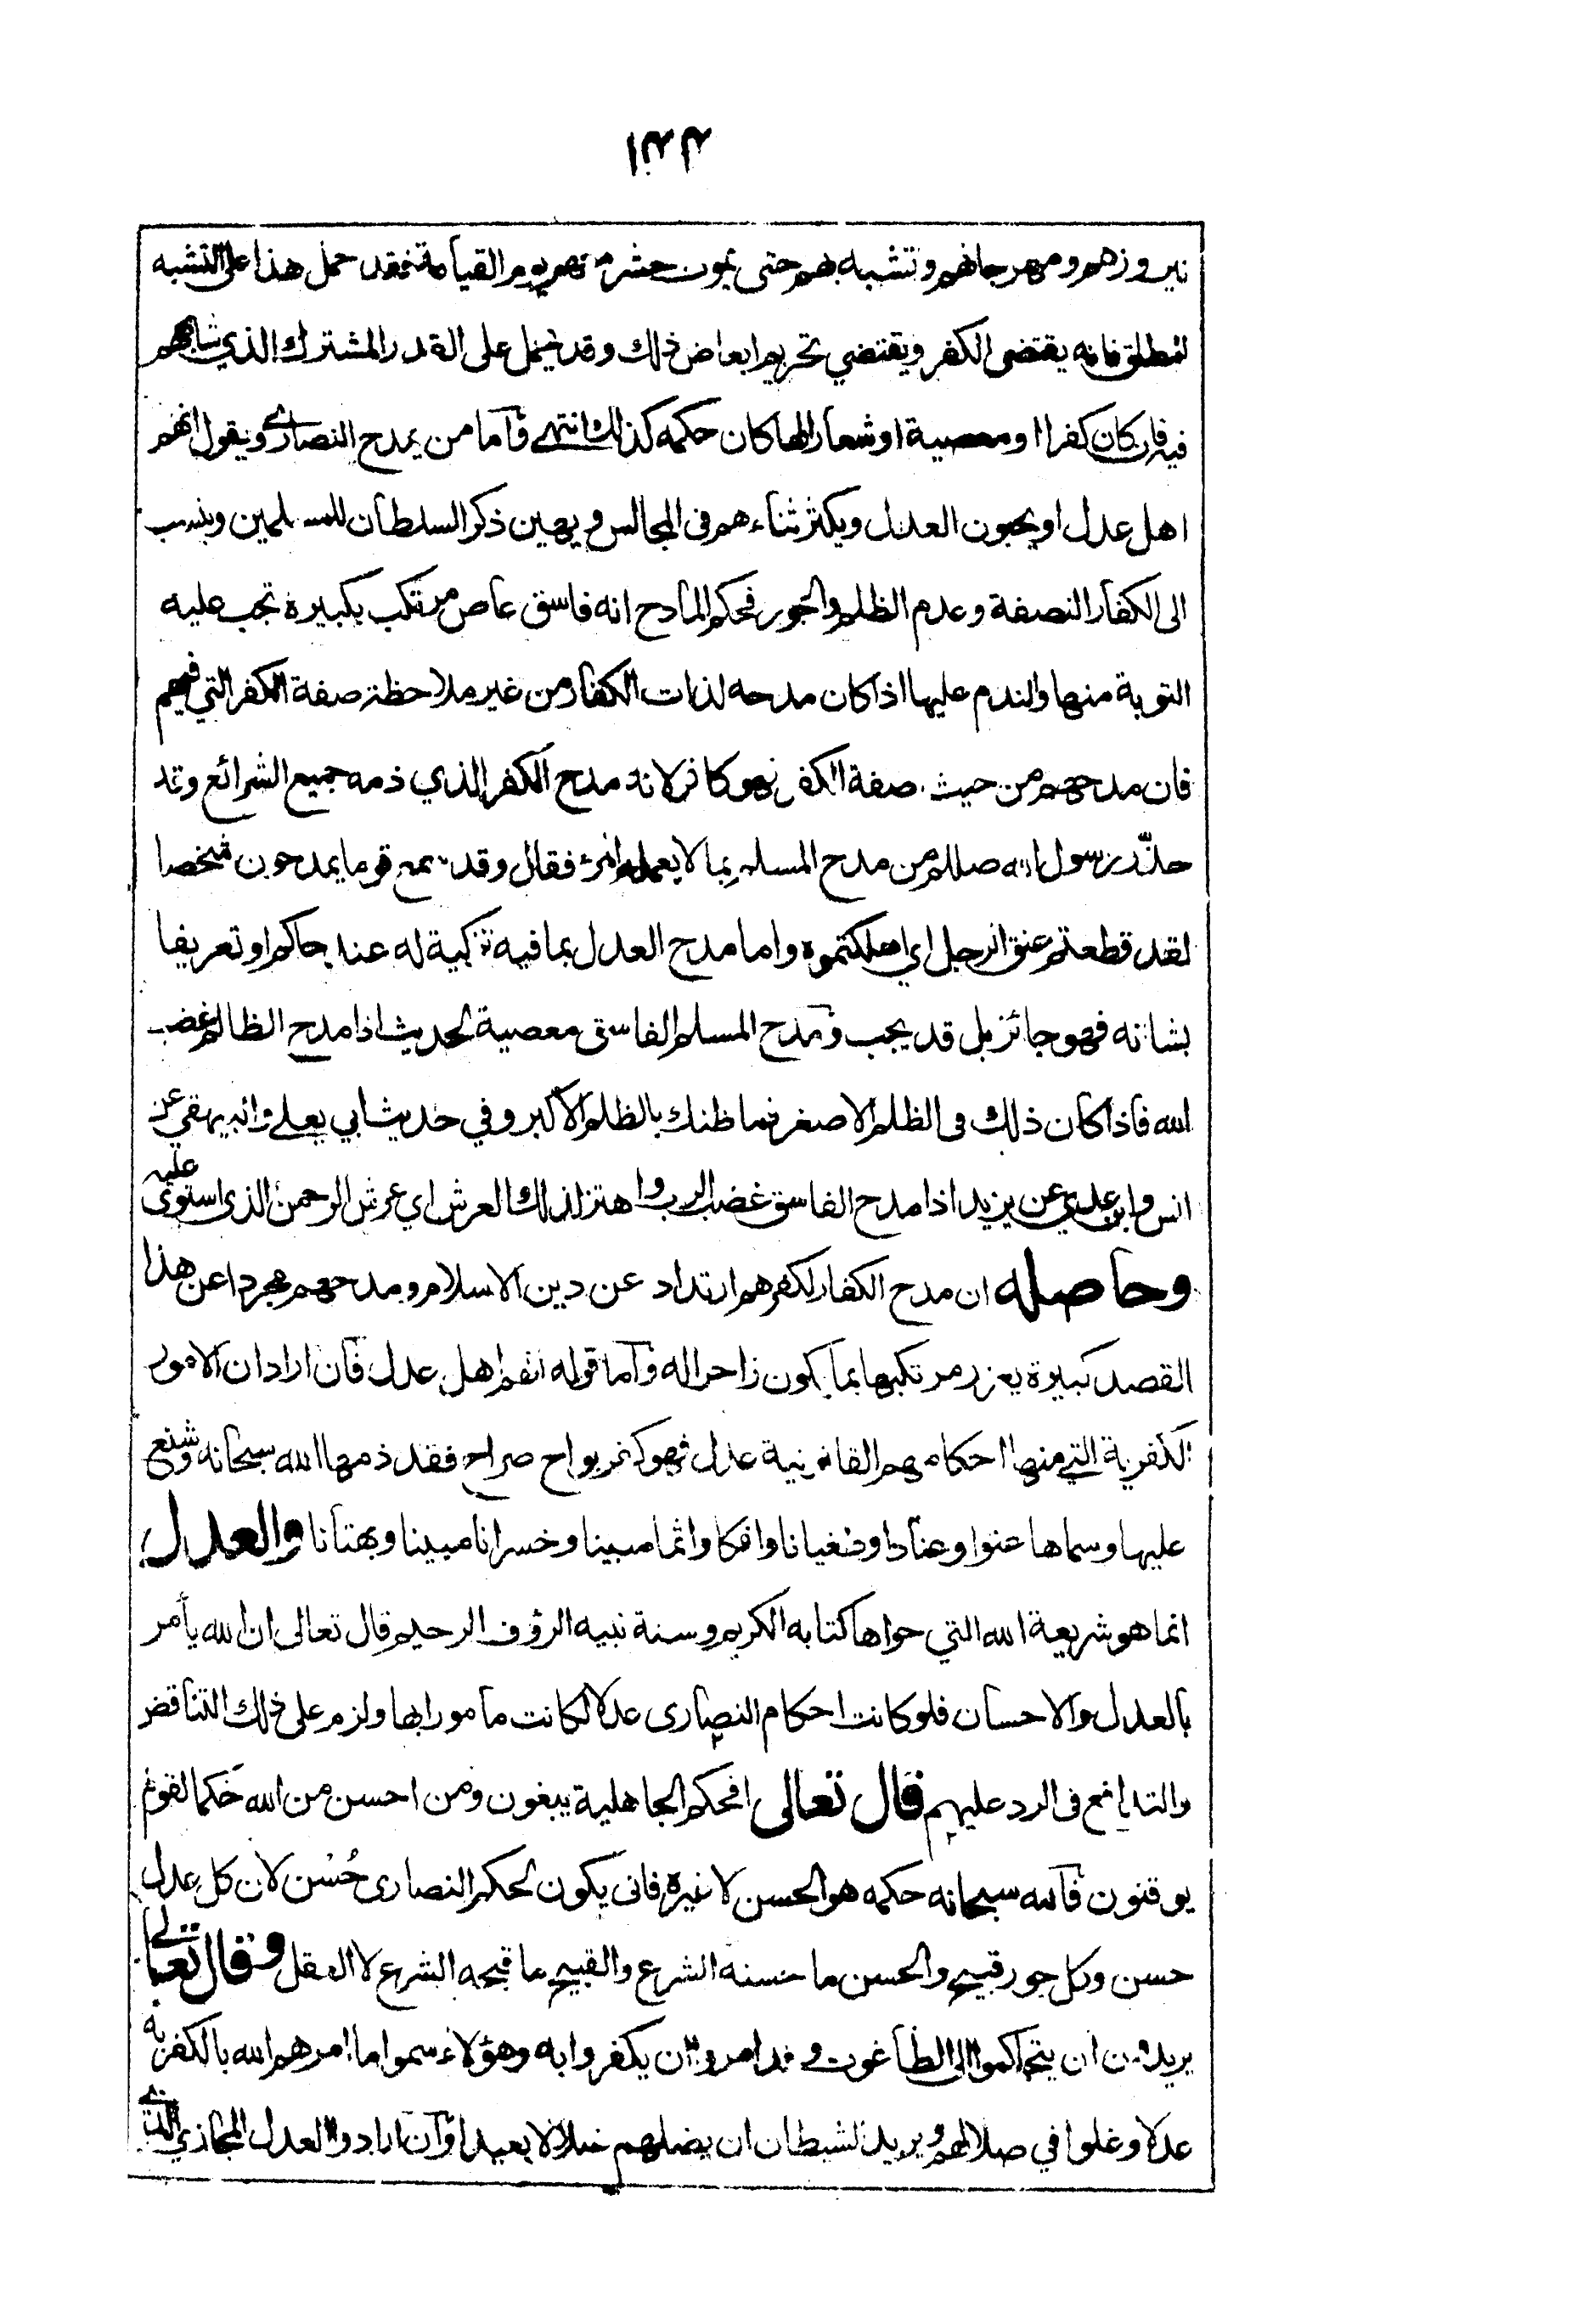 نيروزهم ومهرجانهم وتشبه بهم حتى يموت حشر معهم يوم القيامة فقد حمل هذا على التشبه
المطلق فانه يقتضي الكفر ويقتضي تحريم ابعاض ذلك وقد يحمل على القدر المشترك الذي شابههم
فيه فان كان كفرا او معصية او شعارا لها كان حكمه كذلك انتهى وآما من يمدح النصارى ويقول انهم
اهل عدل او يحبون العدل ويكثر ثناءهم في المجالس ويهين ذكر السلطان للمسلمين وينسب
الى الكفار النصفة وعدم الظلم والجور فحكم المادح انه فاسق عاص مرتكب بكبيرة تجب عليه
التوبة منها والندم عليها اذا كان مدحه لذات الكفار من غير ملاحظة صفة الكفر التي فيهم
فان مدحهم من حيث صفة الكفر فهو كافر لانه مدح الكفر الذي ذمه جميع الشرائع وقد
حذّر رسول الله صللم من مدح المسلم بما لا يعمله المرء فقال وقد سمع قوما يمدحون شخصا
لقد قطعتم عنق الرجل اي اهلكتموه واما مدح العدل بما فيه تزكية له عند حاكم او تعريفا
بشانه فهو جائز بل قد يجب ومدح المسلم الفاسق معصية لحديث اذا مدح الظالم غضب
الله فاذا كان ذلك في الظلم الاصغر فما ظنك بالظلم الاكبر وفي حديث ابي يعلى والبيهقي عن
انس وابن عدي عن يزيد اذا مدح الفاسق غضب الرب واهتز لذلك العرش اي عرش الرحمن الذي استوى عليه
وحاصله ان مدح الكفار لكفرهم ارتداد عن دين الاسلام ومدحهم مجردا عن هذا
القصد كبيرة يعزر مرتكبها بما يكون زاجرا له وآما قوله انهم اهل عدل فان اراد ان الامور
الكفرية التي منها احكامهم القانونية عدل فهو كفر بواح صراح فقد ذمها الله سبحانه وشنع
عليها وسماها عتوا وعنادا وطغيانا وافكا واثما مبينا وخسرانا مبينا وبهتانا والعدل
انما هو شريعة الله التي حواها كتابه الكريم وسنة نبيه الرؤف الرحيم قال تعالى ان الله يأمر
بالعدل والاحسان فلو كانت احكام النصارى عدلا لكانت مامورا بها ولزم على ذلك التناقض
والتدافع في الرد عليهم قال تعالى افحكم الجاهلية يبغون ومن احسن من الله حكما لقوم
يوقنون فالله سبحانه حكمه هو الحسن لا غيره فانى يكون لحكم النصارى حُسْن لان كل عدل
حسن وكل جور قبيح والحسن ما حسنه الشرع والقبيح ما قبحه الشرع لا العقل وقال تعالى
يريدون ان يتحاكموا الى الطاغوت وقد امروا ان يكفروا به وهؤلاء سموا ما امرهم الله بالكفر به
عدلا وغلوا في ضلالهم ويريد الشيطان ان يضلهم ضلالا بعيدا وآن ارادوا العدل المجازي الذي